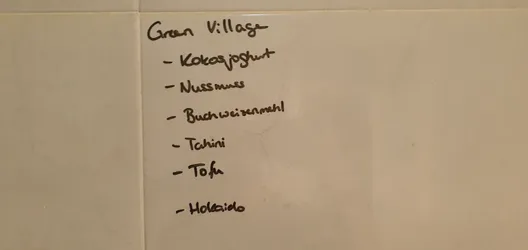 Green Village
- Kokosjoghurt
- Nussmuss
- Buchweizenmehl
- Tahini
- Tofu
- Hokkaido